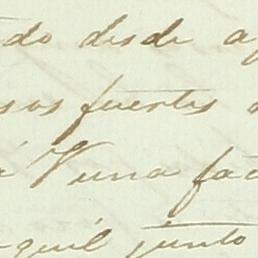 do desde a
sos fuertes
á Vuna fac
quil junto